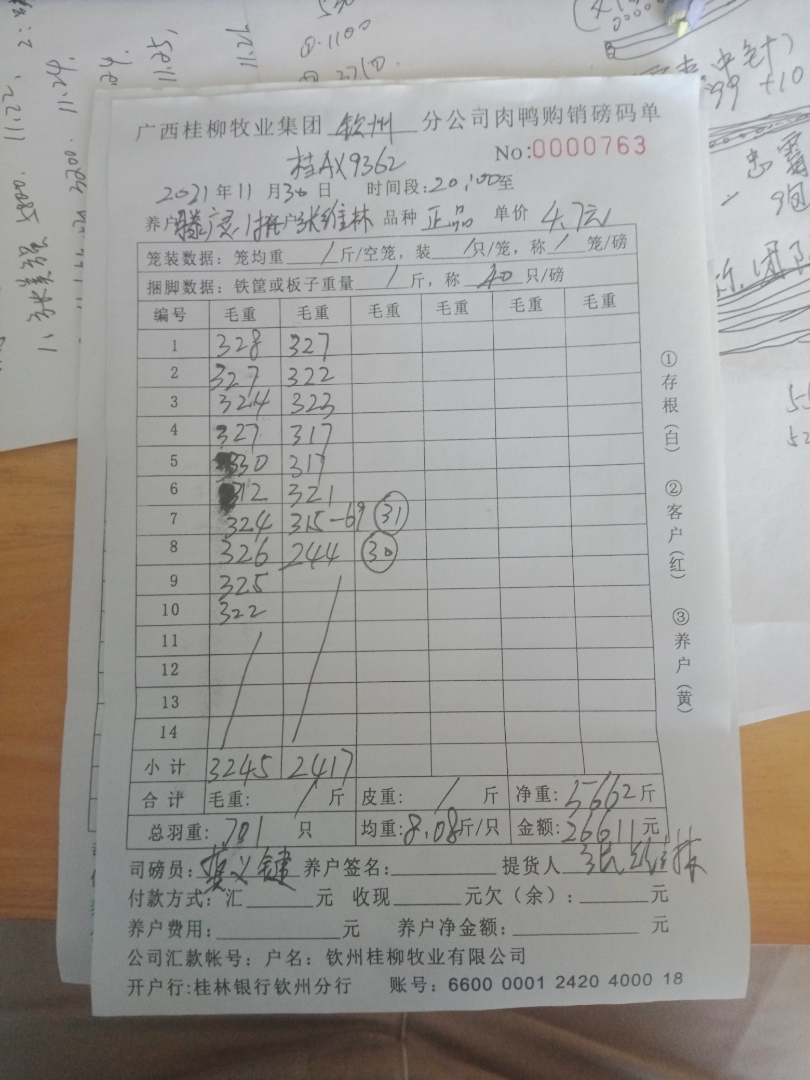 广西桂柳牧业集团 钦州 分公司肉鸭购销磅码单
桂AX9362 No:0000763
2021年11月30日 时间段:20:00至
养户 客户张维林 品种 正品 单价 4.7元
笼装数据:笼均重 / 斤/空笼,装 / 只/笼,称 / 笼/磅
捆脚数据:铁筐或板子重量 / 斤,称 40 只/磅
编号 毛重 毛重 毛重 毛重 毛重 毛重
1 328 327
2 327 322
3 324 323
4 327 317
5 330 317
6 312 321
7 324 315-69 31
8 326 244 30
9 325
10 322
11
12
13
14
小计 3245 2417
合计 毛重: / 斤 皮重: / 斤 净重:5662斤
总羽重:701 只 均重:8.08斤/只 金额:26611元
司磅员: 义键 养户签名: 提货人 张维林
付款方式:汇 元 收现 元欠(余): 元
养户费用: 元 养户净金额: 元
公司汇款帐号:户名:钦州桂柳牧业有限公司
开户行:桂林银行钦州分行 账号:6600 0001 2420 4000 18
①存根(白) ②客户(红) ③养户(黄)
11.22
11.24
11.25
0.1100
99 +10